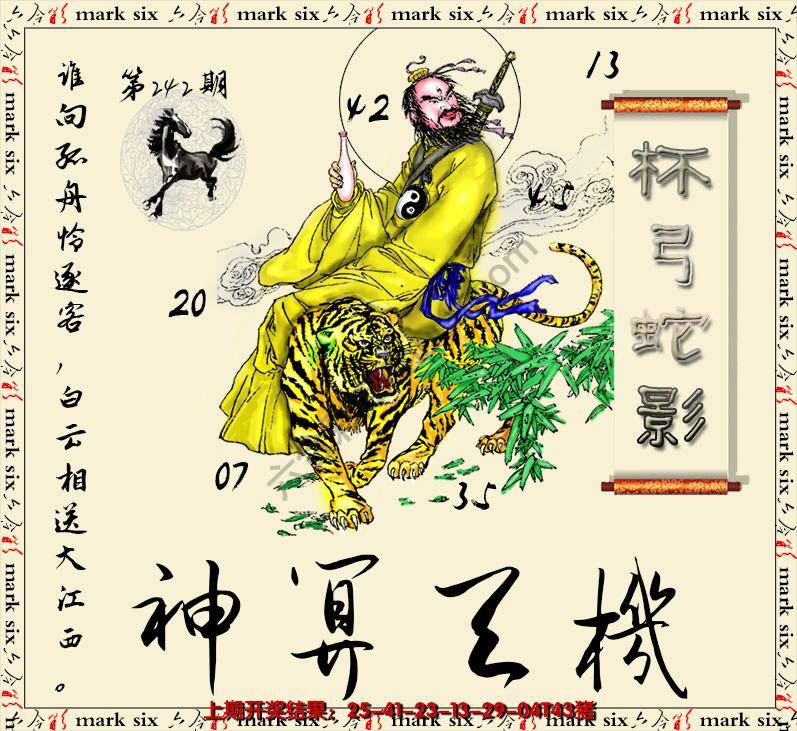 mark six
谁向孤舟怜逐客，白云相送大江西。
第242期
42
13
45
20
07
35
杯弓蛇影
神算天機
上期开奖结果：25-41-23-13-29-04T43猪